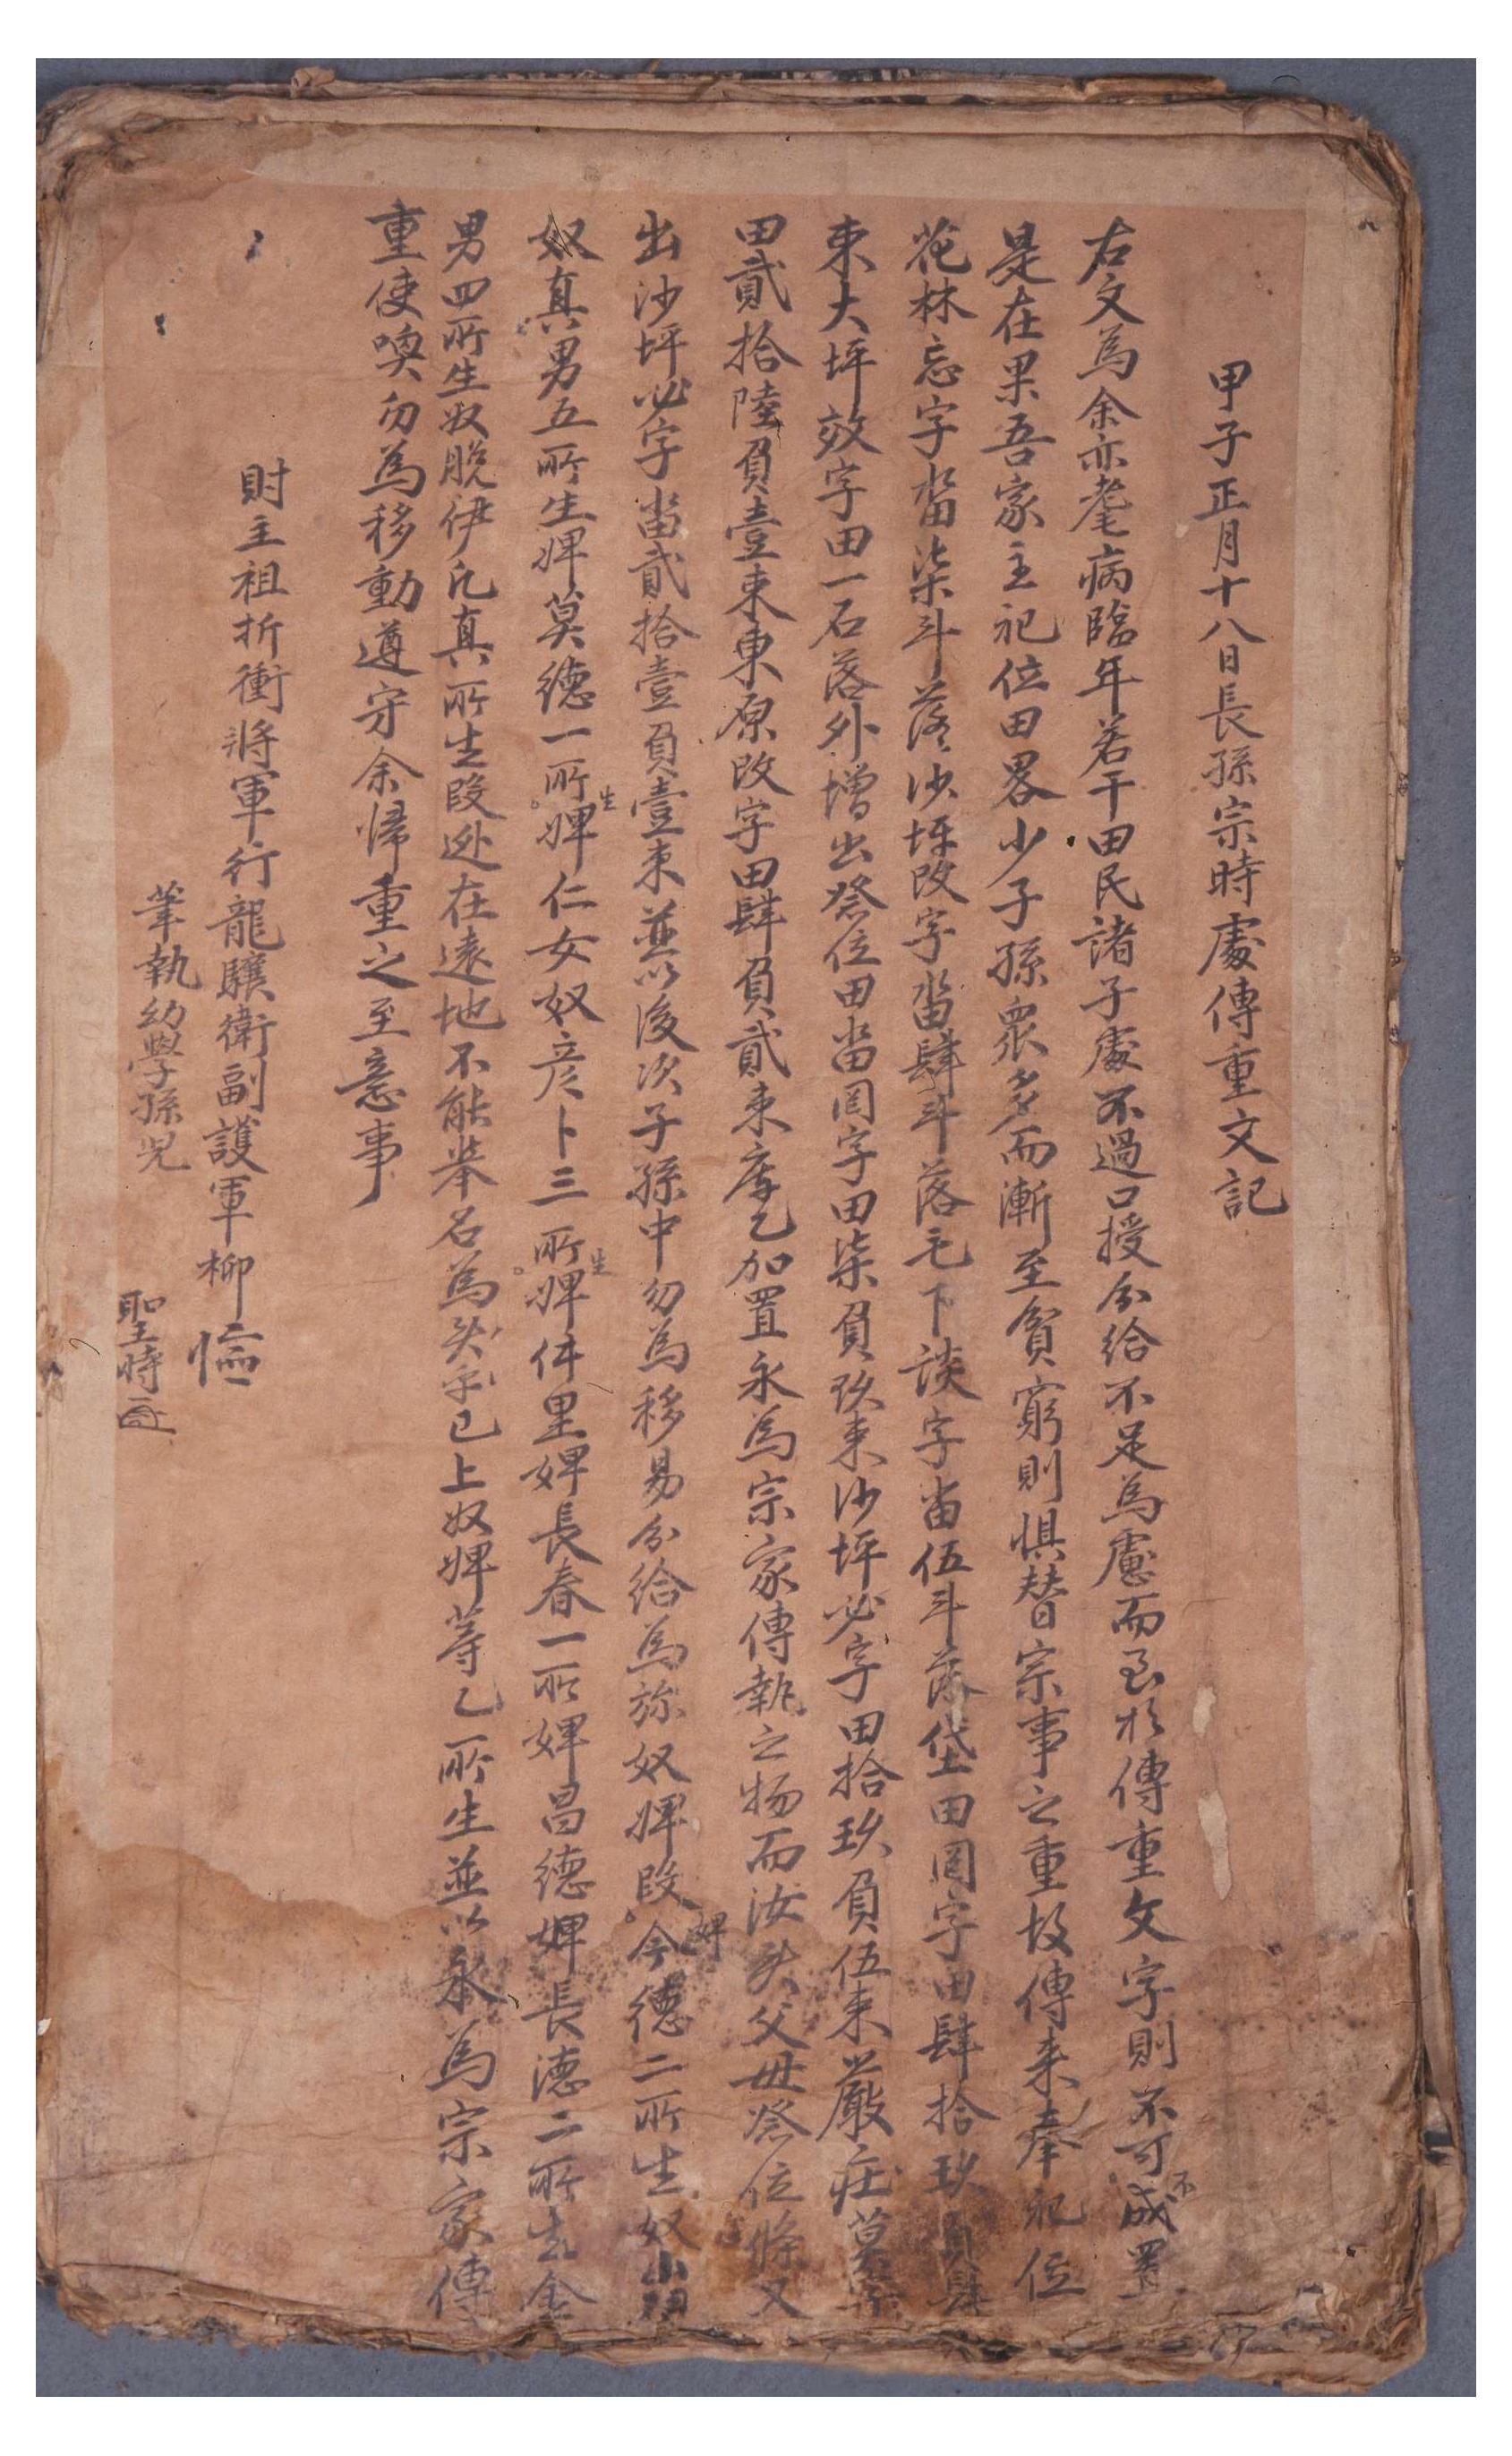 甲子正月十八日長孫宗時處傳重文記
右文為余亦老病臨年若干田民諸子處不過口授分給不足為慮而至於傳重文字則不可不成置
是在果吾家主祀位田畧少子孫衆多而漸至貧窮則惧替宗事之重故傳来奉祀位
花林忘字畓柒斗落沙坪改字畓肆斗落毛下談字畓伍斗落垈田罔字田肆拾玖負肆
束大坪效字田一石落外增出祭位田畓罔字田柒負玖束沙坪必字田拾玖負伍束嚴庄莫字
田貳拾陸負壹束東原改字田肆負貳束庫乙加置永為宗家傳執之物而汝矣父母祭位條又
出沙坪必字畓貳拾壹負壹束並以後次子孫中勿為移易分給為㫆奴婢段婢今德二所生奴山
奴真男五所生婢莫德一所生婢仁女奴彦卜三所生婢件里婢長春一所婢昌德婢長德二所生金
男四所生奴脫伊凡真所生段迯在遠地不能举名為矣乎已上奴婢等乙所生並以永為宗家傳
重使喚勿為移動遵守余歸重之至意事
財主祖折衝將軍行龍驤衛副護軍柳
筆執幼學孫児聖時